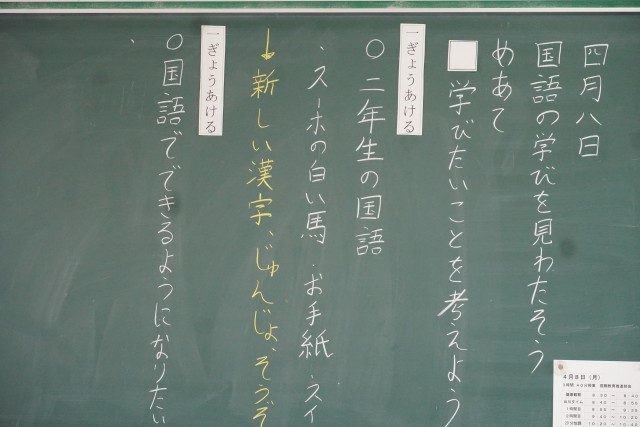 四月八日
国語の学びを見わたそう
めあて
学びたいことを考えよう
一ぎょうあける
〇二年生の国語
・スーホの白い馬・お手紙・スイ
↓新しい漢字、じゅんじょ、そうぞ
一ぎょうあける
〇国語でできるようになりたい
、
4月8日(月)